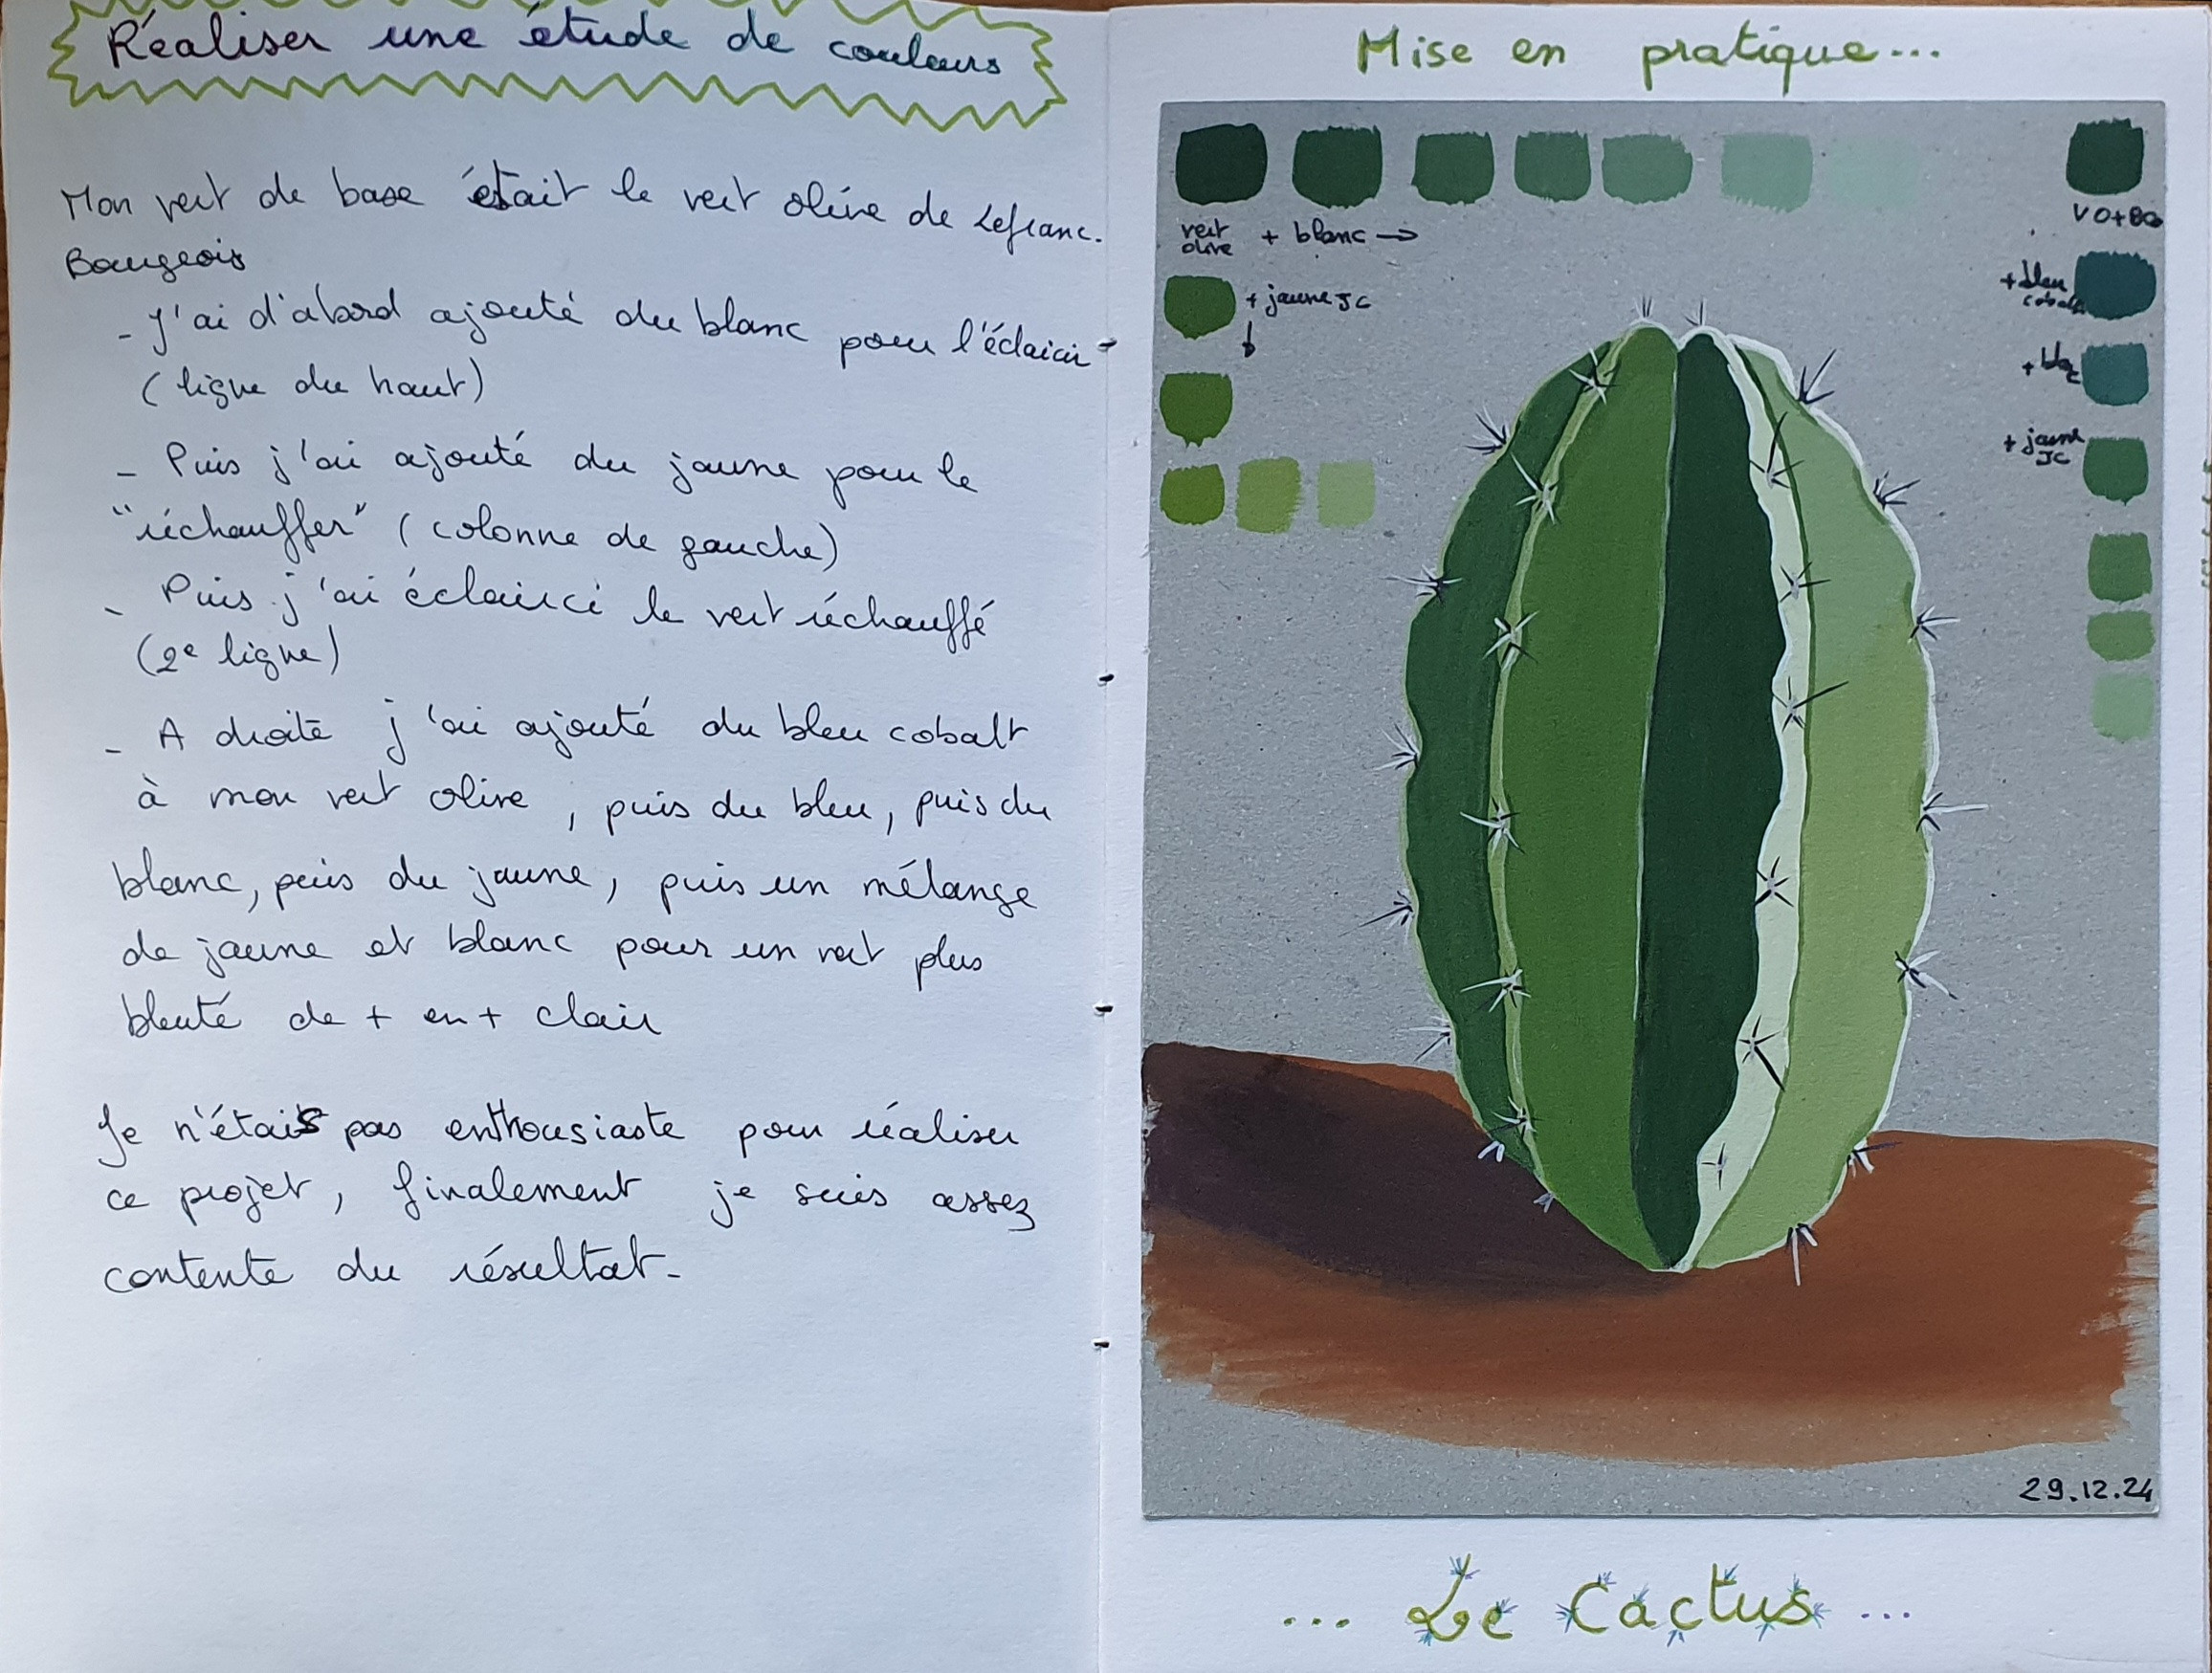 Réaliser une étude de couleurs
Mon vert de base était le vert olive de Lefranc.
Bourgeois
- J'ai d'abord ajouté du blanc pour l'éclaicir
(ligne du haut)
- Puis j'ai ajouté du jaune pour le
"réchauffer" (colonne de gauche)
- Puis j'ai éclairci le vert réchauffé
(2e ligne)
- A droite j'ai ajouté du bleu cobalt
à mon vert olive, puis du bleu, puis du
blanc, puis du jaune, puis un mélange
de jaune et blanc pour un vert plus
bleuté de + en + clair
Je n'étais pas enthousiaste pour réaliser
ce projet, finalement je suis assez
contente du résultat-
Mise en pratique...
vert
olive
+ blanc →
+ jaune JC
↓
+ bleu
cobalt
+ jaune
JC
29.12.24
... Le Cactus ...